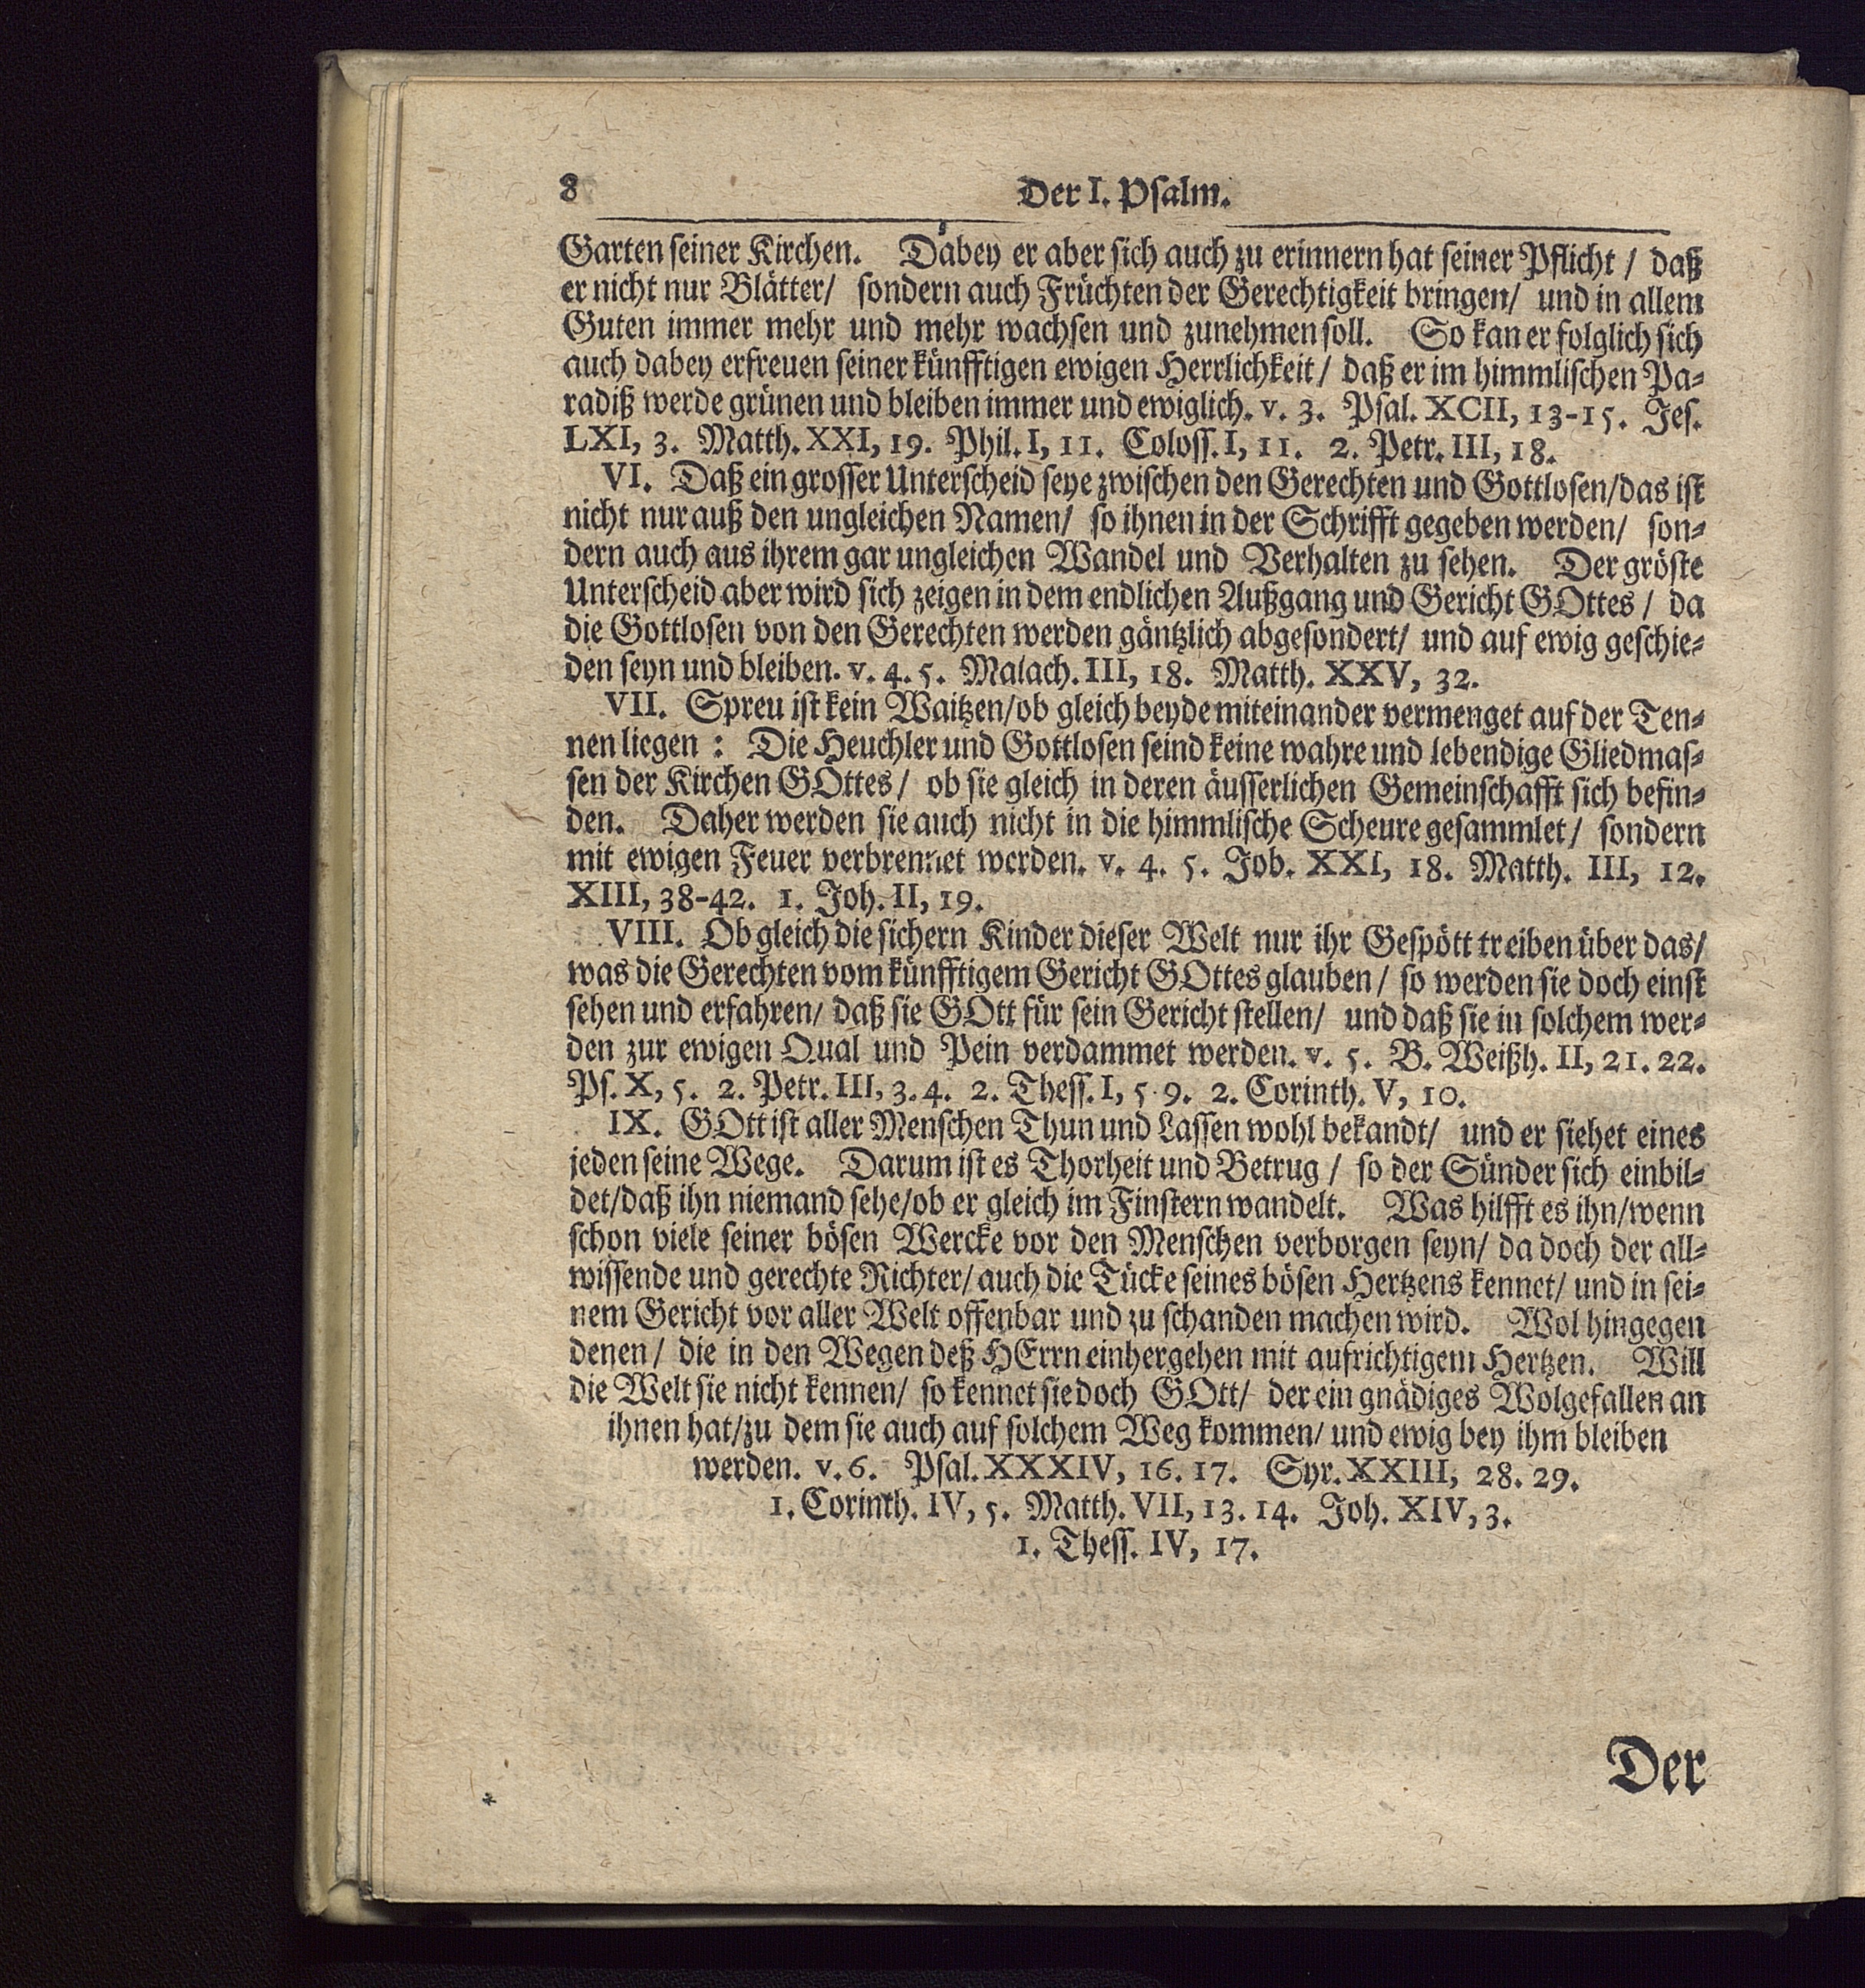 8 Der I. Psalm.
Garten seiner Kirchen. Dabey er aber sich auch zu erinnern hat seiner Pflicht / daß
er nicht nur Blätter/ sondern auch Früchten der Gerechtigkeit bringen/ und in allem
Guten immer mehr und mehr wachsen und zunehmen soll. So kan er folglich sich
auch dabey erfreuen seiner künfftigen ewigen Herrlichkeit/ daß er im himmlischen Pa-
radiß werde grünen und bleiben immer und ewiglich. v. 3. Psal. XCII, 13-15. Jes.
LXI, 3. Matth. XXI, 19. Phil. I, 11. Coloss. I, 11. 2. Petr. III, 18.
VI. Daß ein grosser Unterscheid seye zwischen den Gerechten und Gottlosen/das ist
nicht nur auß den ungleichen Namen/ so ihnen in der Schrifft gegeben werden/ son-
dern auch aus ihrem gar ungleichen Wandel und Verhalten zu sehen. Der gröste
Unterscheid aber wird sich zeigen in dem endlichen Außgang und Gericht GOttes / da
die Gottlosen von den Gerechten werden gäntzlich abgesondert/ und auf ewig geschie-
den seyn und bleiben. v. 4. 5. Malach. III, 18. Matth. XXV, 32.
VII. Spreu ist kein Waitzen/ob gleich beyde miteinander vermenget auf der Ten-
nen liegen : Die Heuchler und Gottlosen seind keine wahre und lebendige Gliedmas-
sen der Kirchen GOttes / ob sie gleich in deren äusserlichen Gemeinschafft sich befin-
den. Daher werden sie auch nicht in die himmlische Scheure gesammlet/ sondern
mit ewigen Feuer verbrennet werden. v. 4. 5. Job. XXI, 18. Matth. III, 12.
XIII, 38-42. 1. Joh. II, 19.
VIII. Ob gleich die sichern Kinder dieser Welt nur ihr Gespött treiben über das/
was die Gerechten vom künfftigem Gericht GOttes glauben / so werden sie doch einst
sehen und erfahren/ daß sie GOtt für sein Gericht stellen/ und daß sie in solchem wer-
den zur ewigen Qual und Pein verdammet werden. v. 5. B. Weißh. II, 21. 22.
Ps. X, 5. 2. Petr. III, 3. 4. 2. Thess. I, 5 9. 2. Corinth. V, 10.
IX. GOtt ist aller Menschen Thun und Lassen wohl bekandt/ und er siehet eines
jeden seine Wege. Darum ist es Thorheit und Betrug / so der Sünder sich einbil-
det/daß ihn niemand sehe/ob er gleich im Finstern wandelt. Was hilfft es ihn/wenn
schon viele seiner bösen Wercke vor den Menschen verborgen seyn/ da doch der all-
wissende und gerechte Richter/ auch die Tücke seines bösen Hertzens kennet/ und in sei-
nem Gericht vor aller Welt offenbar und zu schanden machen wird. Wol hingegen
denen/ die in den Wegen deß HErrn einhergehen mit aufrichtigem Hertzen. Will
die Welt sie nicht kennen/ so kennet sie doch GOtt/ der ein gnädiges Wolgefallen an
ihnen hat/zu dem sie auch auf solchem Weg kommen/ und ewig bey ihm bleiben
werden. v. 6. Psal. XXXIV, 16. 17. Syr. XXIII, 28. 29.
1. Corinth. IV, 5. Matth. VII, 13. 14. Joh. XIV, 3.
1. Thess. IV, 17.
Der